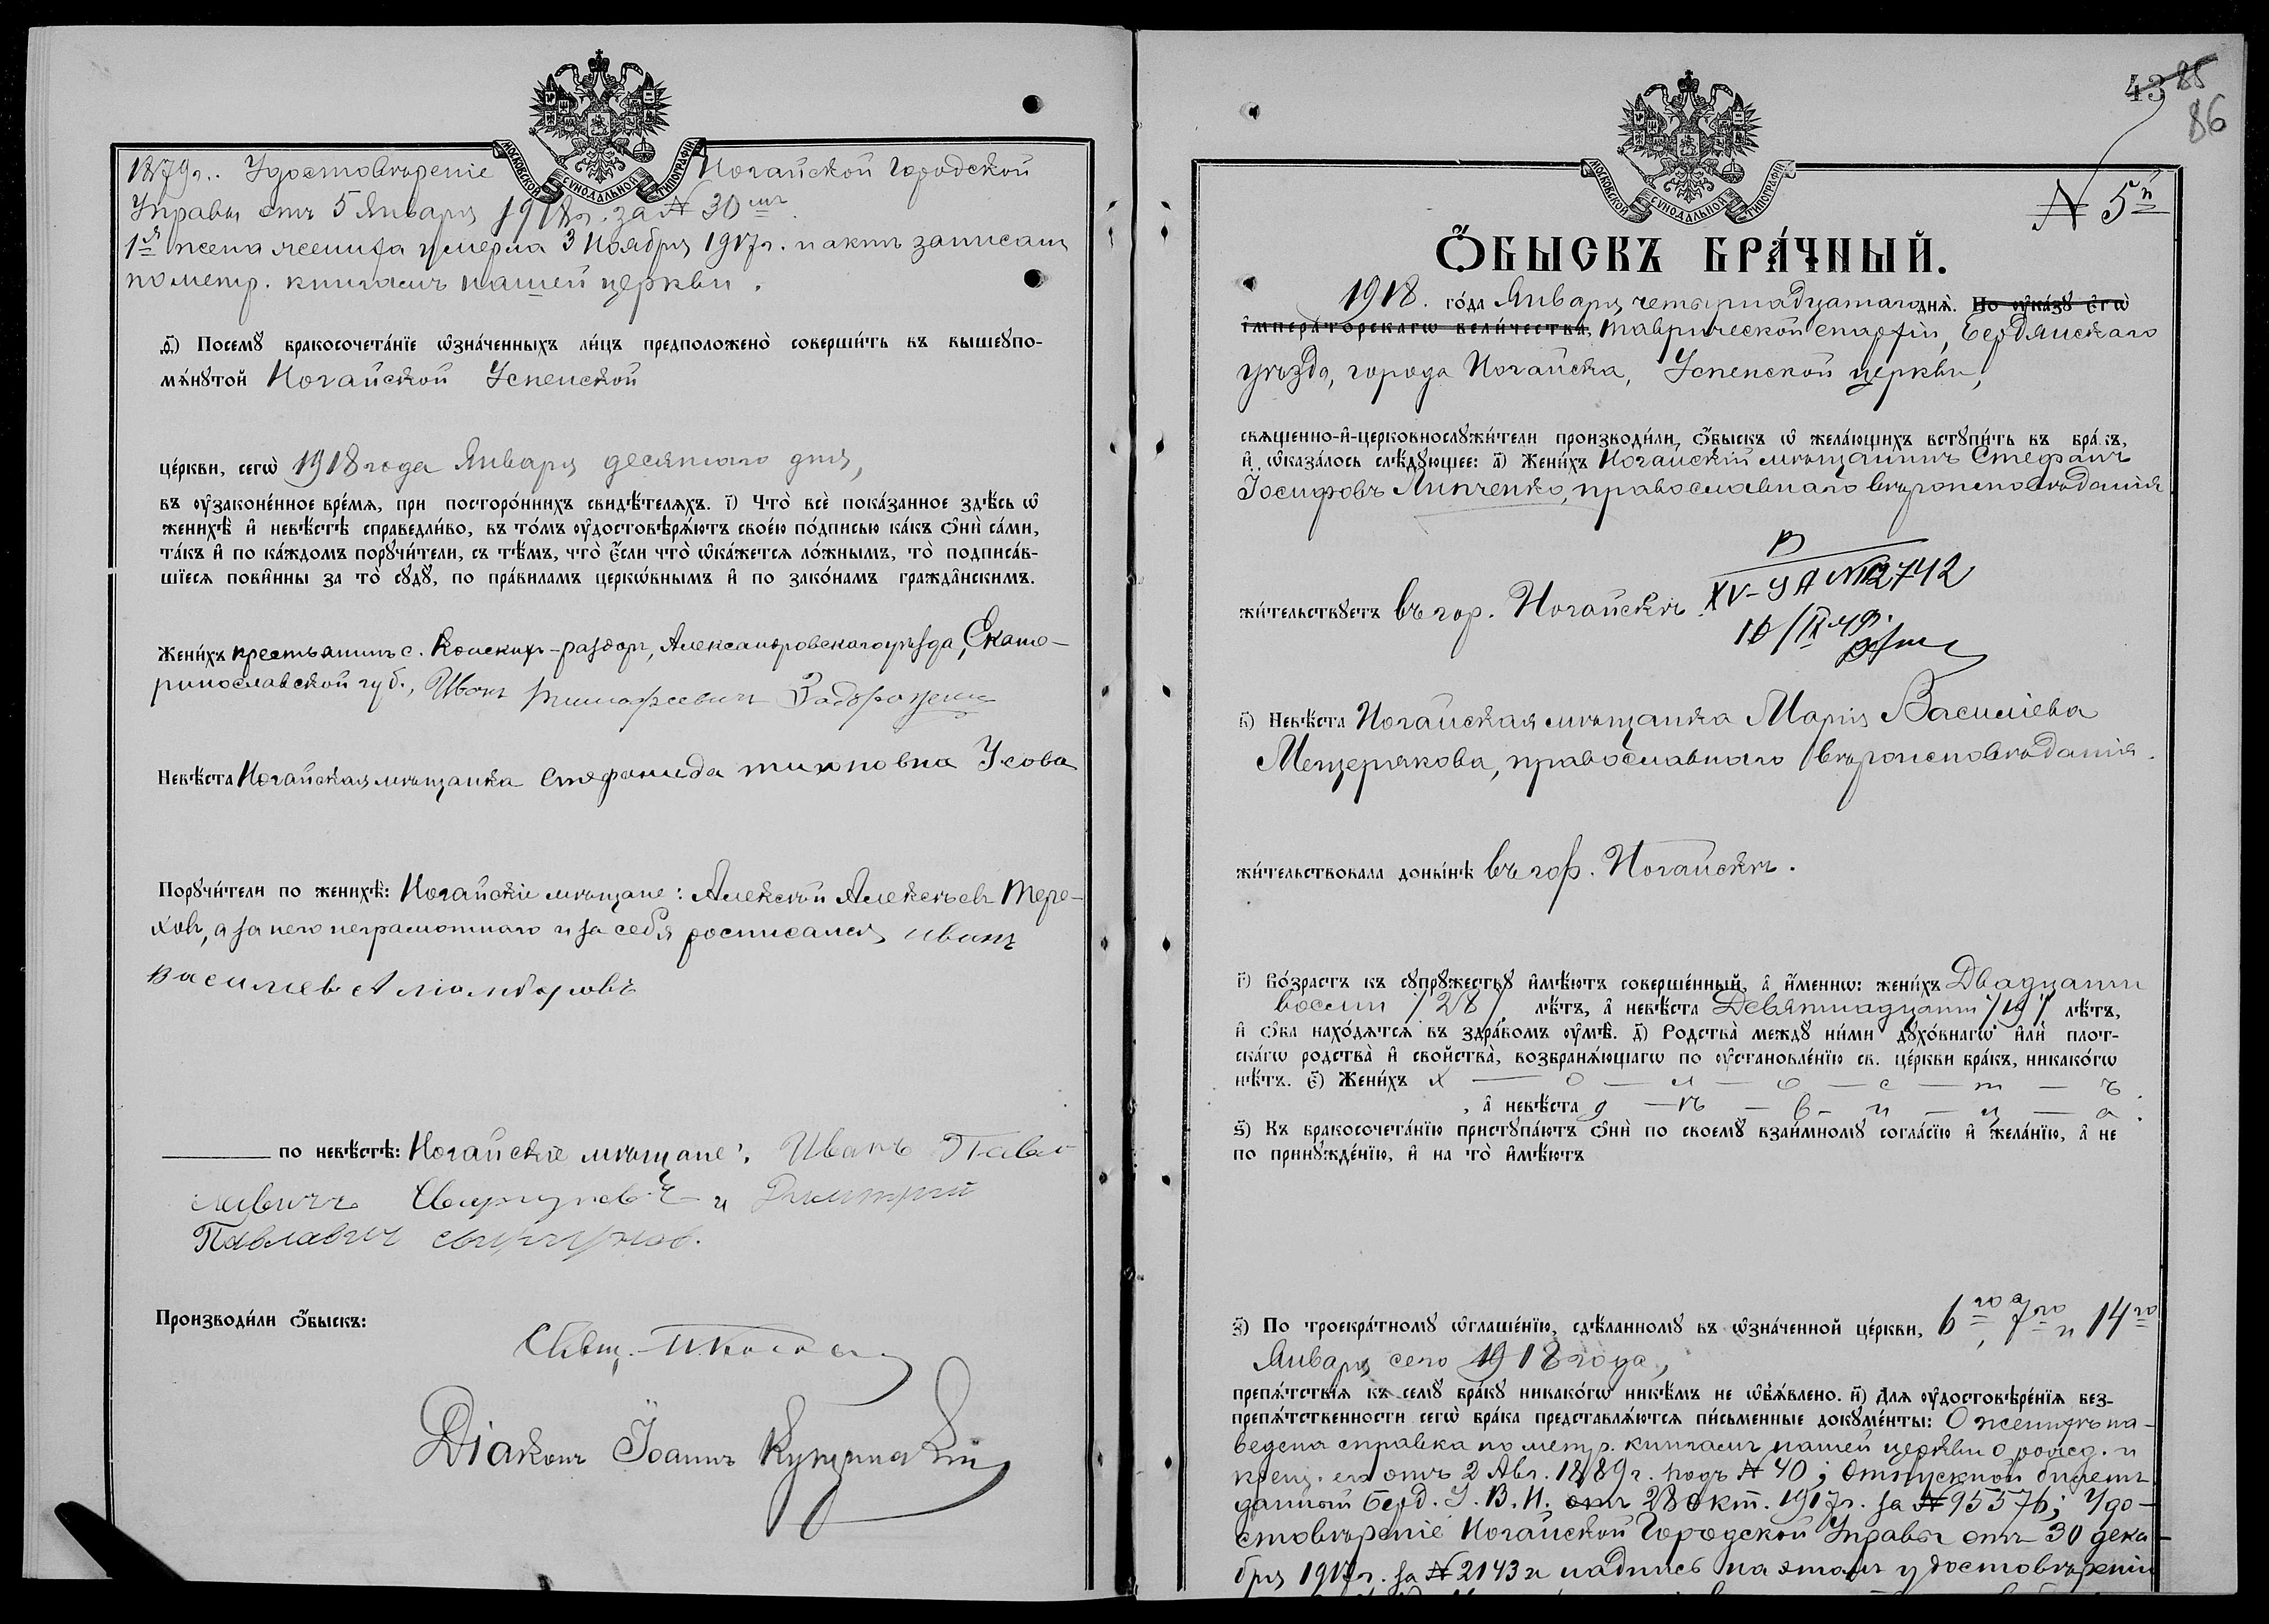 МОСКОВСКОЙ СУНОДАЛЬНОЙ ТИПОГРАФІИ
1879 г. Удостовѣреніе Ногайской Городской
Управы отъ 5 Января 1918 г. за № 30мъ.
1я жена жениха умерла 3 Ноября 1917 г. и актъ записанъ
по метр. книгамъ нашей церкви.
ѳ҃) Посемꙋ̀ бракосочета́нїе ѡ҆зна́ченныхъ ли́цъ предположено̀ соверши́ть въ вышеꙋпо-
мѧ́нꙋтой Ногайской Успенской
це́ркви, сегѡ̀ 1918 года Января десятаго дня,
въ ᲂу҆законе́нное вре́мѧ, при посторо́ннихъ свидѣ́телѧхъ. і҃) Что̀ всѐ пока́занное здѣ́сь ѡ҆
женихѣ̀ и҆ невѣ́стѣ справедли́во, въ то́мъ ᲂу҆достовѣрѧ́ютъ свое́ю по́дписью ка́къ ѻ҆нѝ са́ми,
та́къ и҆ по ка́ждомъ порꙋчи́тели, съ тѣ́мъ, что̀ є҆́сли что̀ ѡ҆ка́жетсѧ ло́жнымъ, то̀ подписа́в-
шїесѧ пови́нны за то̀ сꙋдꙋ̀, по пра́виламъ церко́внымъ и҆ по зако́намъ гражда́нскимъ.
Жени́хъ крестьянинъ с. Конскихъ-раздоръ, Александровскаго уѣзда, Екате-
ринославской губ., Иванъ Тимофеевичъ
Невѣ́ста Ногайская мѣщанка Стефанида Тихновна Усова
Порꙋчи́тели по женихѣ̀: Ногайскіе мѣщане: Алексѣй Алексѣевъ Тере-
ховъ, а за него неграмотнаго и за себя росписался Иванъ
Василиев
по невѣ́стѣ: Ногайскіе мѣщане: Иванъ Павло
и Димитрий
Павлавич
Производи́ли ѻ҆́быскъ:
Свящ.
Діаконъ Іоаннъ
43 85
86
МОСКОВСКОЙ СУНОДАЛЬНОЙ ТИПОГРАФІИ
№ 5й
Ѻ҆́БЫСКЪ БРА́ЧНЫЙ.
1918. го́да Января четырнадцатаго днѧ̀. По ᲂу҆ка́зꙋ є҆гѡ̀
і҆мпера́торскагѡ вели́чества, Таврической епархіи, Бердянскаго
уѣзда, города Ногайска, Успенской церкви,
свѧще́нно-и҆-церковнослꙋжи́тели производи́ли ѻ҆́быскъ ѡ҆ жела́ющихъ встꙋпи́ть въ бра́къ,
и҆ ѡ҆каза́лось слѣ́дꙋющее: а҃) Жени́хъ Ногайскій мѣщанинъ Стефанъ
Іосифовъ Липченко, православнаго вѣроисповѣданія
жи́тельствꙋетъ въ гор. Ногайскѣ.
в҃) Невѣ́ста Ногайская мѣщанка Марія Василіева
Мещерякова, православнаго вѣроисповѣданія.
жи́тельствовала доны́нѣ въ гор. Ногайскѣ.
г҃) Во́зрастъ къ сꙋпрꙋ́жествꙋ и҆мѣ́ютъ соверше́нный, а҆ и҆́менно: жени́хъ Двадцати
восьми /28/ лѣ́тъ, а҆ невѣ́ста Девятнадцати /19/ лѣ́тъ,
и҆ ѻ҆́ба нахо́дѧтсѧ въ здра́вомъ ᲂу҆мѣ̀. д҃) Родства̀ междꙋ̀ ни́ми дꙋхо́внагѡ и҆лѝ плот-
ска́гѡ родства̀ и҆ сво́йства̀, возбранѧ́ющагѡ по ᲂу҆становле́нїю св. це́ркви бра́къ, никако́гѡ
нѣ́тъ. є҃) Жени́хъ х — о — л — о — с — т — ъ
, а҆ невѣ́ста д — ѣ — в — и — ц — а.
ѕ҃) Къ бракосочета́нїю пристꙋпа́ютъ ѻ҆нѝ по своемꙋ̀ взаи́мномꙋ согла́сїю и҆ жела́нїю, а҆ не
по принꙋжде́нїю, и҆ на то̀ и҆мѣ́ютъ
з҃) По троекра́тномꙋ ѡ҆глаше́нїю, сдѣ́ланномꙋ въ ѡ҆зна́ченной це́ркви, 6го, 7го и 14го
Января сего 1918 года,
препѧ́тствїѧ къ семꙋ̀ бра́кꙋ никако́гѡ никѣ́мъ не ѡ҆б̾ѧ́влено. и҃) Длѧ ᲂу҆достовѣре́нїѧ без-
препѧ́тственности сегѡ̀ бра́ка представлѧ́ютсѧ пи́сьменные докꙋме́нты: О женихѣ на-
ведена справка по метр. книгамъ нашей церкви о рожд. и
крещ. его отъ 2 Авг. 1889 г. подъ № 40; Отпускной билетъ
данный Берд. У. В. Н. отъ 28 окт. 1917 г. за № 95576; Удо-
стовѣреніе Ногайской Городской Управы отъ 30 дека-
бря 1917 г. за № 2143 и надпись на этомъ удостовѣреніи